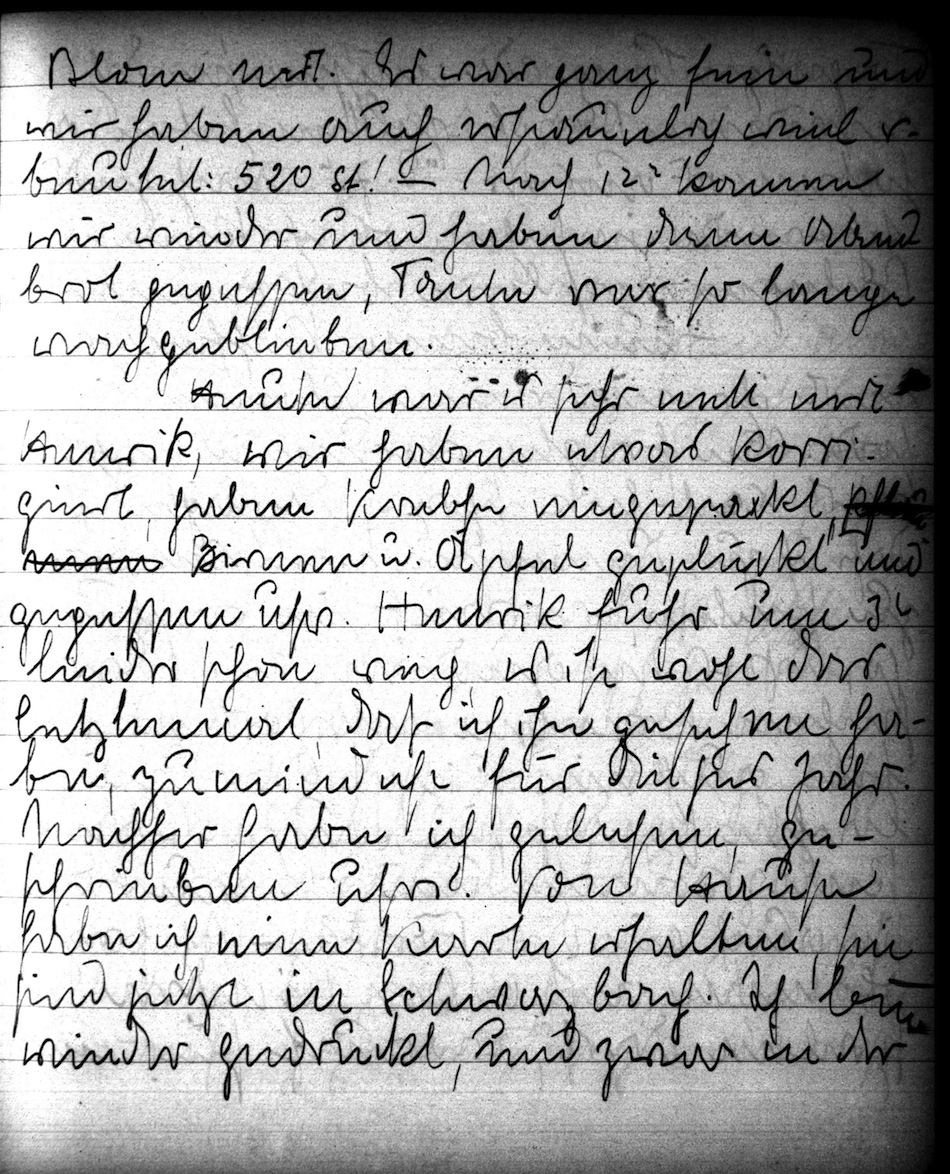 Blom mit. Es war ganz fein und
wir haben auch erstaunlich viel er-
beutet: 520 st! — Nach 12² kamen
wir wieder und haben dann Abend
brot gegessen, Tante war so lange
wach geblieben.
Heute war es sehr nett mit
Henrik, wir haben etwas korri-
giert, haben Krebse eingepackt,
Birnen u. Äpfel gepflückt und
gegessen usw. Henrik fuhr um 3
leider schon weg, es ist wohl das
letztemal, daß ich ihn gesehen ha-
be, zumindest für dieses Jahr.
Nachher habe ich gelesen, ge-
schrieben usw. Von Hause
habe ich eine Karte erhalten, sie
sind jetzt in Schwarzbach. Ich bin
wieder gedruckt, und zwar in der